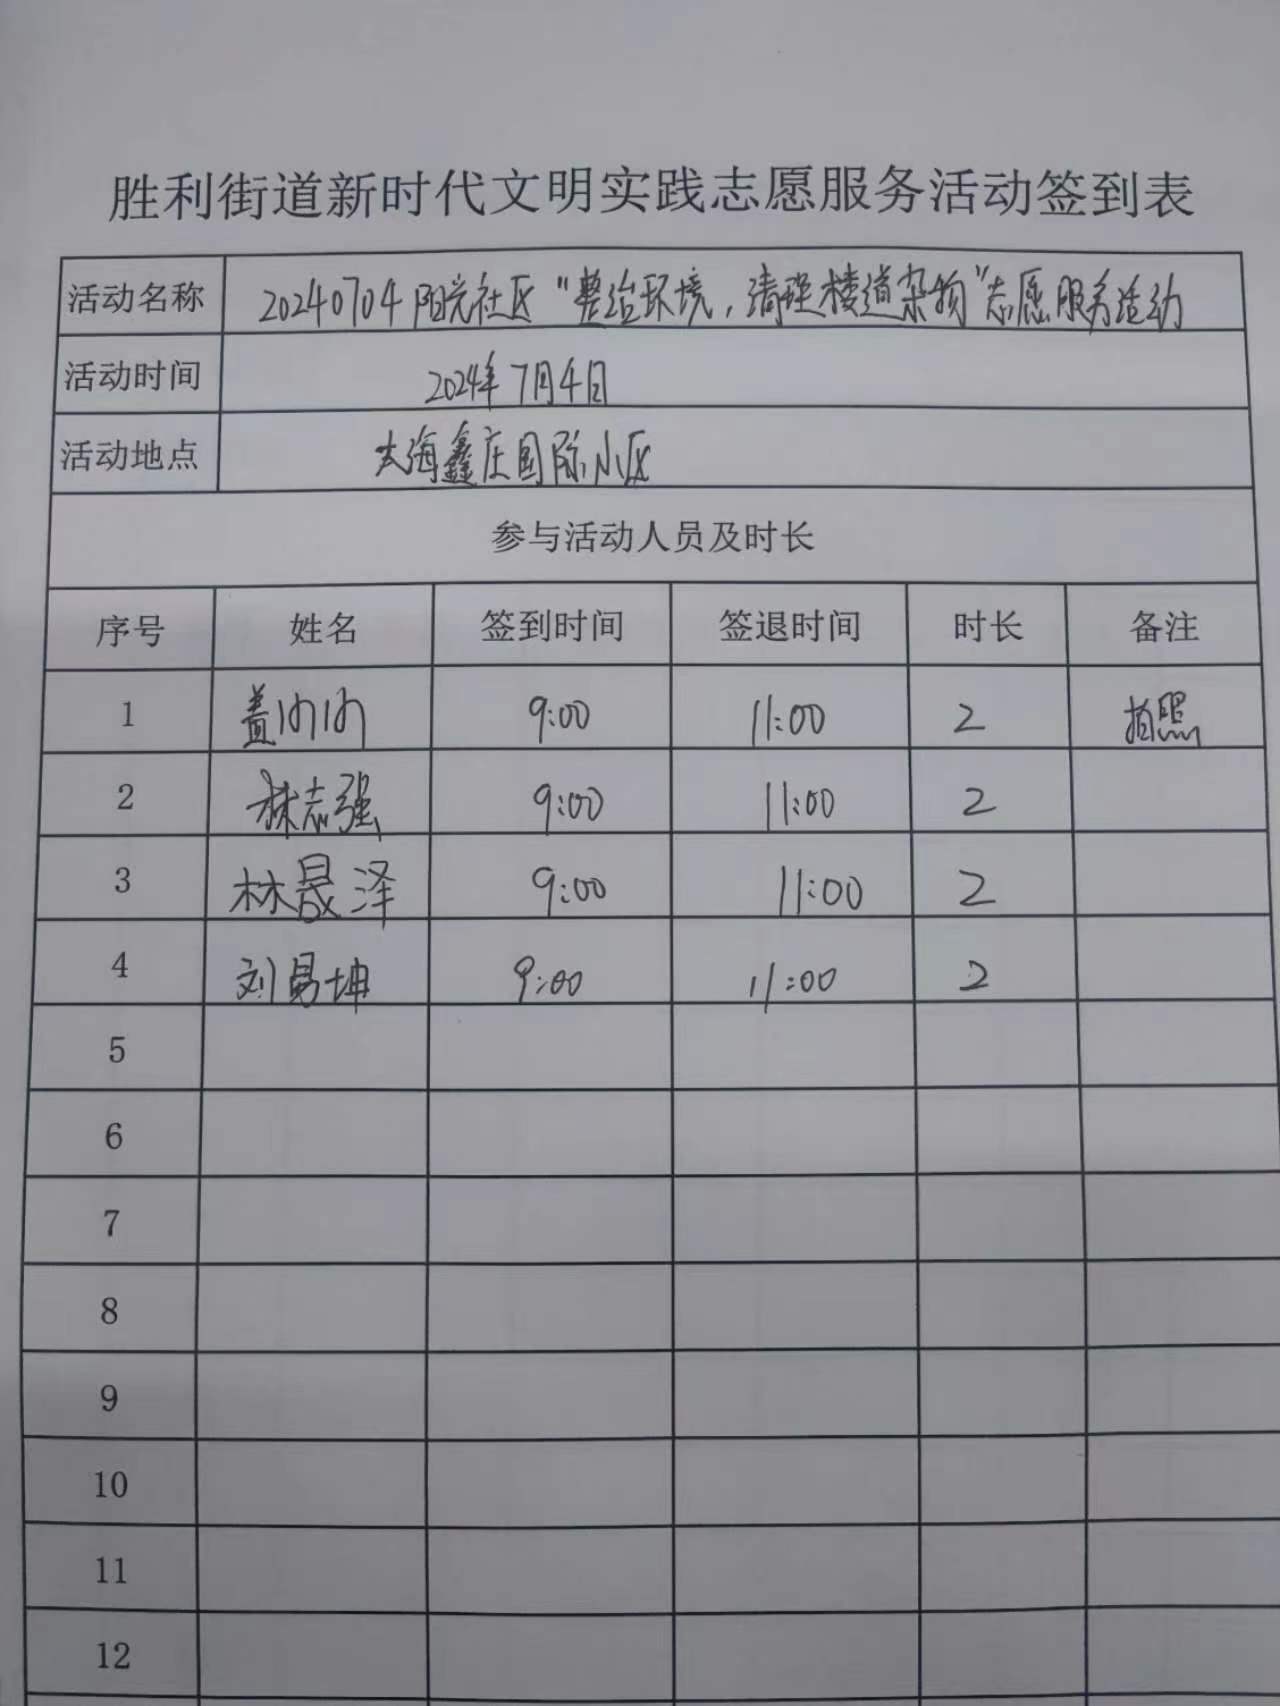 胜利街道新时代文明实践志愿服务活动签到表
活动名称 20240704阳光社区“整治环境，清理楼道杂物”志愿服务活动
活动时间 2024年7月4日
活动地点 大海鑫庄国际小区
参与活动人员及时长
序号 姓名 签到时间 签退时间 时长 备注
1 盖 9:00 11:00 2 拍照
2 林志强 9:00 11:00 2
3 林晟泽 9:00 11:00 2
4 刘易坤 9:00 11:00 2
5
6
7
8
9
10
11
12